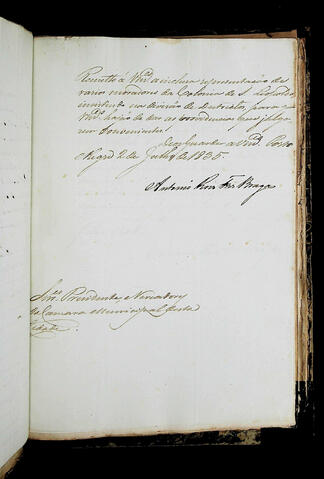 Remetto a Vmces a inclusa representação de
varios moradores da Colonia de S. Leopoldo
sobre a divizão de Districtos, para que
Vmces hajão de dar as providencias que julga-
rem convenientes.
Deos Guarde a Vmces Porto
Alegre 2 de Julho de 1835
Antonio Roiz Frz Braga
Snres Presidente, e Vereadores
da Camara Municipal desta
Cidade.